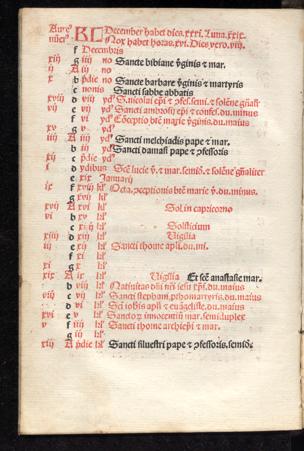 Aure⁹ KL December habet dies.xxxi.Luna.xxix.
nūer⁹ Nox habet horas.xvi.Dies vero.viij.
f Decembris
xiij g iiij no Sancte bibiane v̓ginis ⁊ mar.
ij A iij no
x b p̓die no Sancte barbare v̓ginis ⁊ martyris
c nonis Sancti sabbe abbatis
xviij d viij yd⁹ S.nicolai ep̄i ⁊ ꝯfes.semi.⁊ solēne
vij e vij yd⁹ Sancti ambrosij ep̄i ⁊ confes.du.minus
f vj yd⁹ Cōceptio btē marie v̓ginis.du.maius
xv g v yd⁹
iiij A iiij yd⁹ Sancti melchiadis pape ⁊ mar.
b iij yd⁹ Sancti damasi pape ⁊ ꝯfessoris
xij c p̓die yd⁹
i d ydibus Scē lucie v̓.⁊ mar.semiō.⁊ solēne
e xix Januarij
ix f xviij kl̓ Octa.ꝯceptionis btē marie v̓.du.minus.
g xvij kl̓
xvij A xvi kl̓ Sol.in capricorno
vi b xv kl̓
c xiiij kl̓ Solsticium
xiiij d xiij kl̓ Vigilia
iij e xij kl̓ Sancti thome apl̓i.du.mi.
f xi kl̓
xi g x kl̓
xix A ix kl̓ Vigilia Et scē anastasie mar.
b viij kl̓ Natiuitas dn̄i nr̄i iesu xp̄i.du.maius
viij c vij kl̓ Sancti stephani.ꝓthomartyris.du.maius
d vi kl̓ Scī iohis apl̓i ⁊ euāgeliste.du.maius
xvi e v kl̓ Sanctoꝝ innocentiū mar.semiduplex
v f iiij kl̓ Sancti thome archiep̄i ⁊ mar.
g iij kl̓
xiij A p̓die kl̓ Sancti siluestri pape ⁊ ꝯfessoris.semiō.